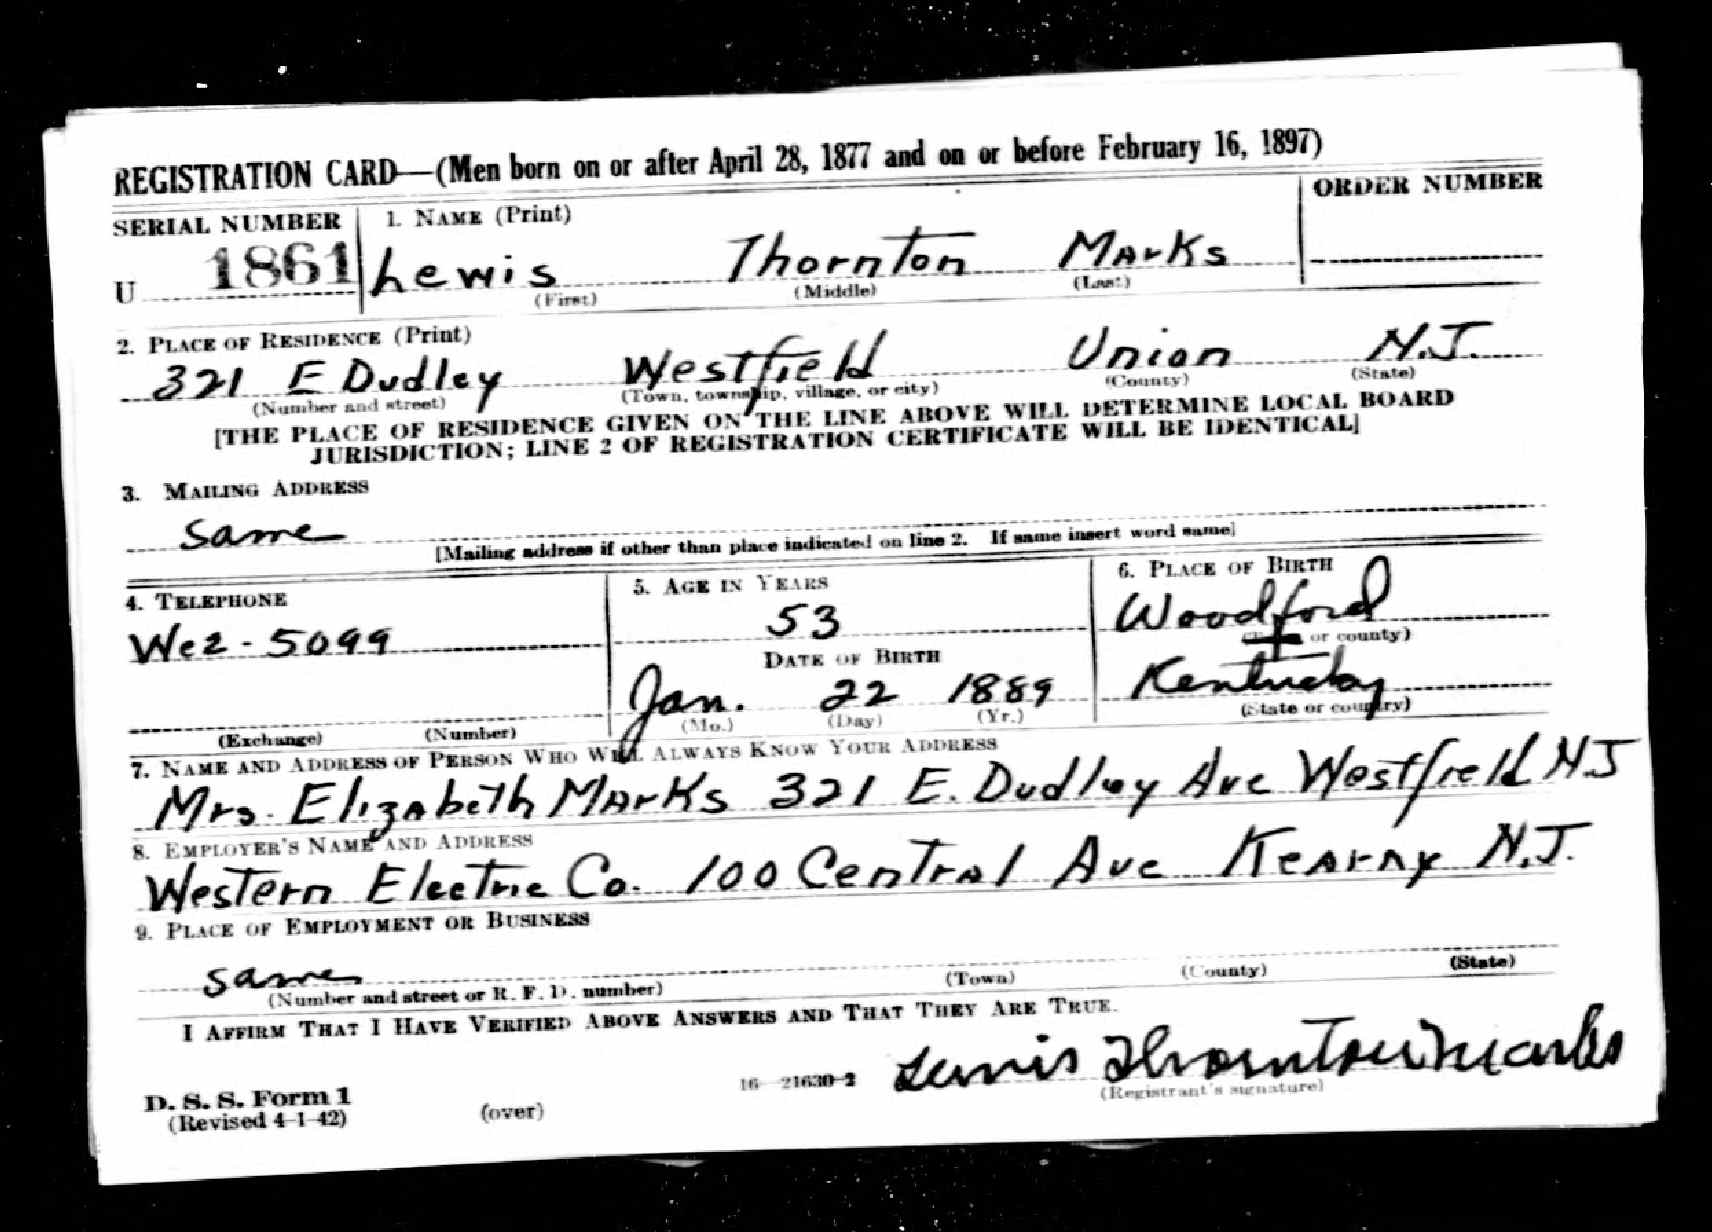 REGISTRATION CARD—(Men born on or after April 28, 1877 and on or before February 16, 1897)
SERIAL NUMBER
1. NAME (Print)
ORDER NUMBER
U 1861
Lewis Thornton Marks
(First) (Middle) (Last)
2. PLACE OF RESIDENCE (Print)
321 E Dudley Westfield Union N.J.
(Number and street) (Town, township, village, or city) (County) (State)
[THE PLACE OF RESIDENCE GIVEN ON THE LINE ABOVE WILL DETERMINE LOCAL BOARD
JURISDICTION; LINE 2 OF REGISTRATION CERTIFICATE WILL BE IDENTICAL]
3. MAILING ADDRESS
Same
[Mailing address if other than place indicated on line 2. If same insert word same]
4. TELEPHONE
We2-5099
(Exchange) (Number)
5. AGE IN YEARS
53
DATE OF BIRTH
Jan. 22 1889
(Mo.) (Day) (Yr.)
6. PLACE OF BIRTH
Woodford
or county)
Kentucky
(State or country)
7. NAME AND ADDRESS OF PERSON WHO WILL ALWAYS KNOW YOUR ADDRESS
Mrs. Elizabeth Marks 321 E. Dudley Ave Westfield N.J
8. EMPLOYER'S NAME AND ADDRESS
Western Electric Co. 100 Central Ave Kearny N.J.
9. PLACE OF EMPLOYMENT OR BUSINESS
Same
(Number and street or R. F. D. number) (Town) (County) (State)
I AFFIRM THAT I HAVE VERIFIED ABOVE ANSWERS AND THAT THEY ARE TRUE.
Lewis Thornton Marks
(Registrant's signature)
D. S. S. Form 1
(Revised 4-1-42) (over) 16—21630-2